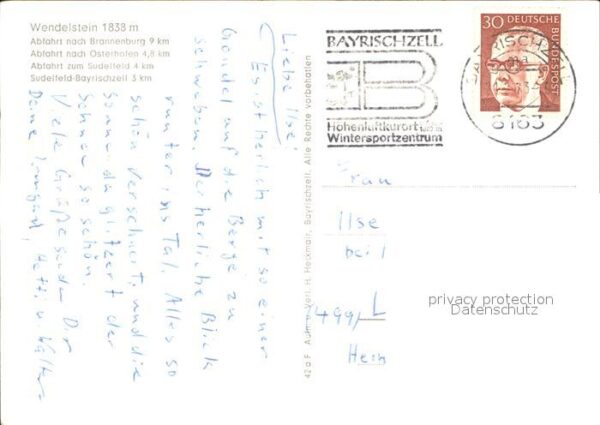 Wendelstein 1838 m
Abfahrt nach Brannenburg 9 km
Abfahrt nach Osterhofen 4,8 km
Abfahrt zum Sudelfeld 4 km
Sudelfeld-Bayrischzell 3 km
Liebe Ilse!
Es ist herlich mit so einer
Gondel auf die Berge zu
schweben. Der herliche Blick
runter ins Tal. Alles so
schön verschneit, und die
Sonne, da glitzert der
Schnee so schön.
Viele Grüße senden Dir
Deine Irmgard, Hetti u. Walter
42 a F Aufn. u. Verl. H. Heckmair, Bayrischzell. Alle Rechte vorbehalten
BAYRISCHZELL
B
Höhenluftkurort und
Wintersportzentrum
BAYRISCHZELL
8163
30 DEUTSCHE
BUNDESPOST
Frau
Ilse
bei
7499/L
Hein
privacy protection
Datenschutz